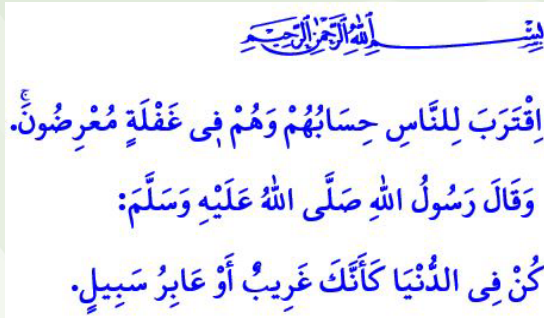 بِسْمِ اللهِ الرَّحْمٰنِ الرَّحِيمِ
اِقْتَرَبَ لِلنَّاسِ حِسَابُهُمْ وَهُمْ فٖى غَفْلَةٍ مُعْرِضُونَۚ.
وَقَالَ رَسُولُ اللهِ صَلَّى اللهُ عَلَيْهِ وَسَلَّمَ:
كُنْ فِى الدُّنْيَا كَأَنَّكَ غَرِيبٌ أَوْ عَابِرُ سَبِيلٍ.